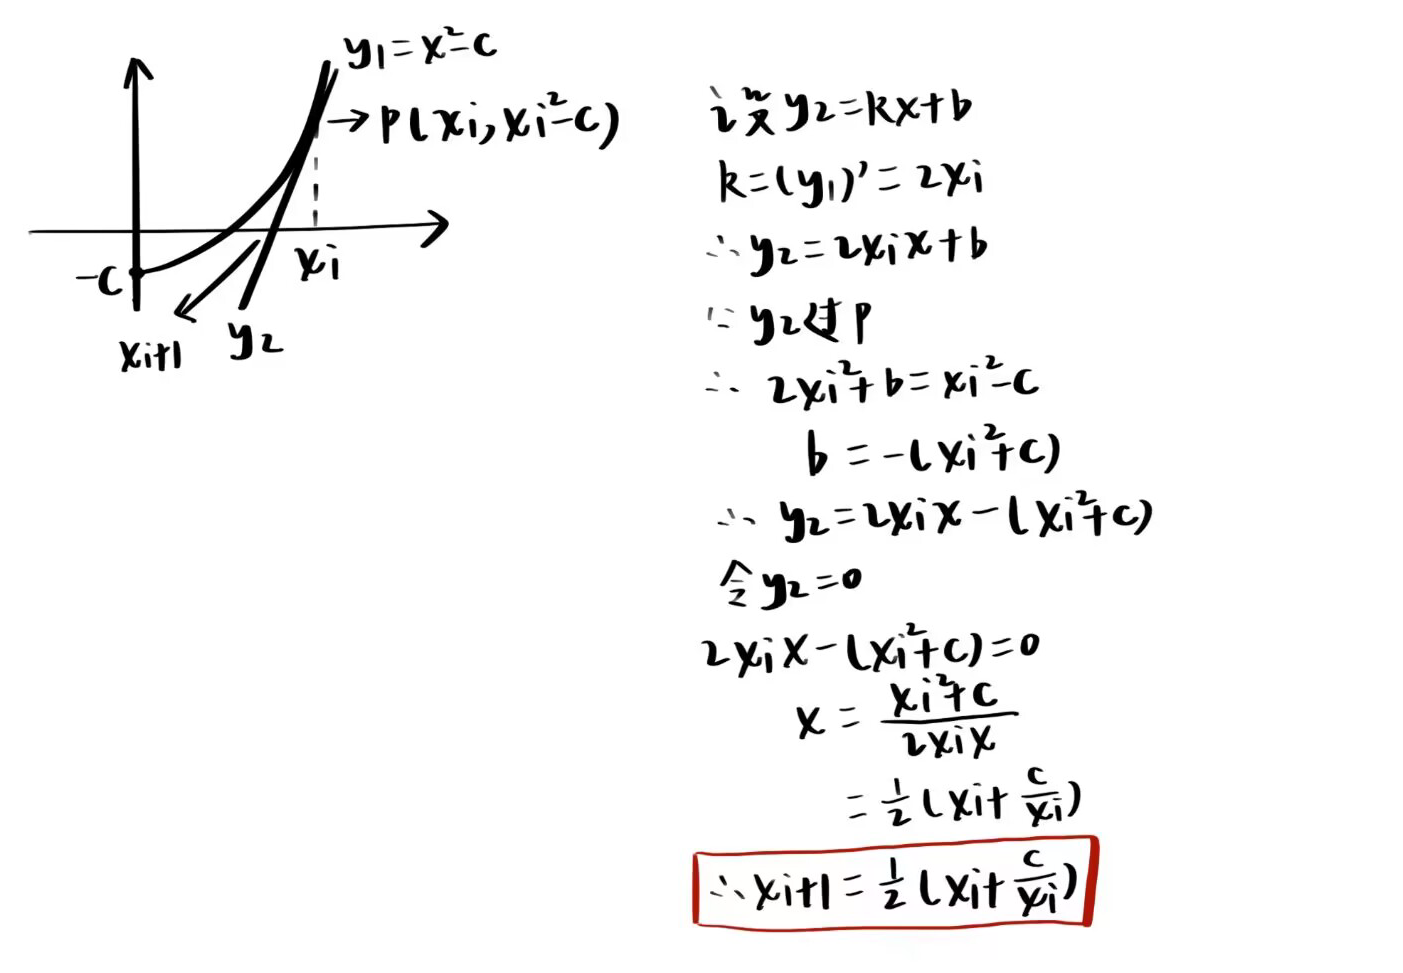 y₁=x²-c
→P(xi,xi²-c)
-c
xi
xi+1
y₂
设y₂=kx+b
k=(y₁)'=2xi
∴y₂=2xix+b
∵y₂过P
∴2xi²+b=xi²-c
b=-(xi²+c)
∴y₂=2xix-(xi²+c)
令y₂=0
2xix-(xi²+c)=0
x=\frac{xi²+c}{2xix}
=\frac{1}{2}(xi+\frac{c}{xi})
∴xi+1=\frac{1}{2}(xi+\frac{c}{xi})